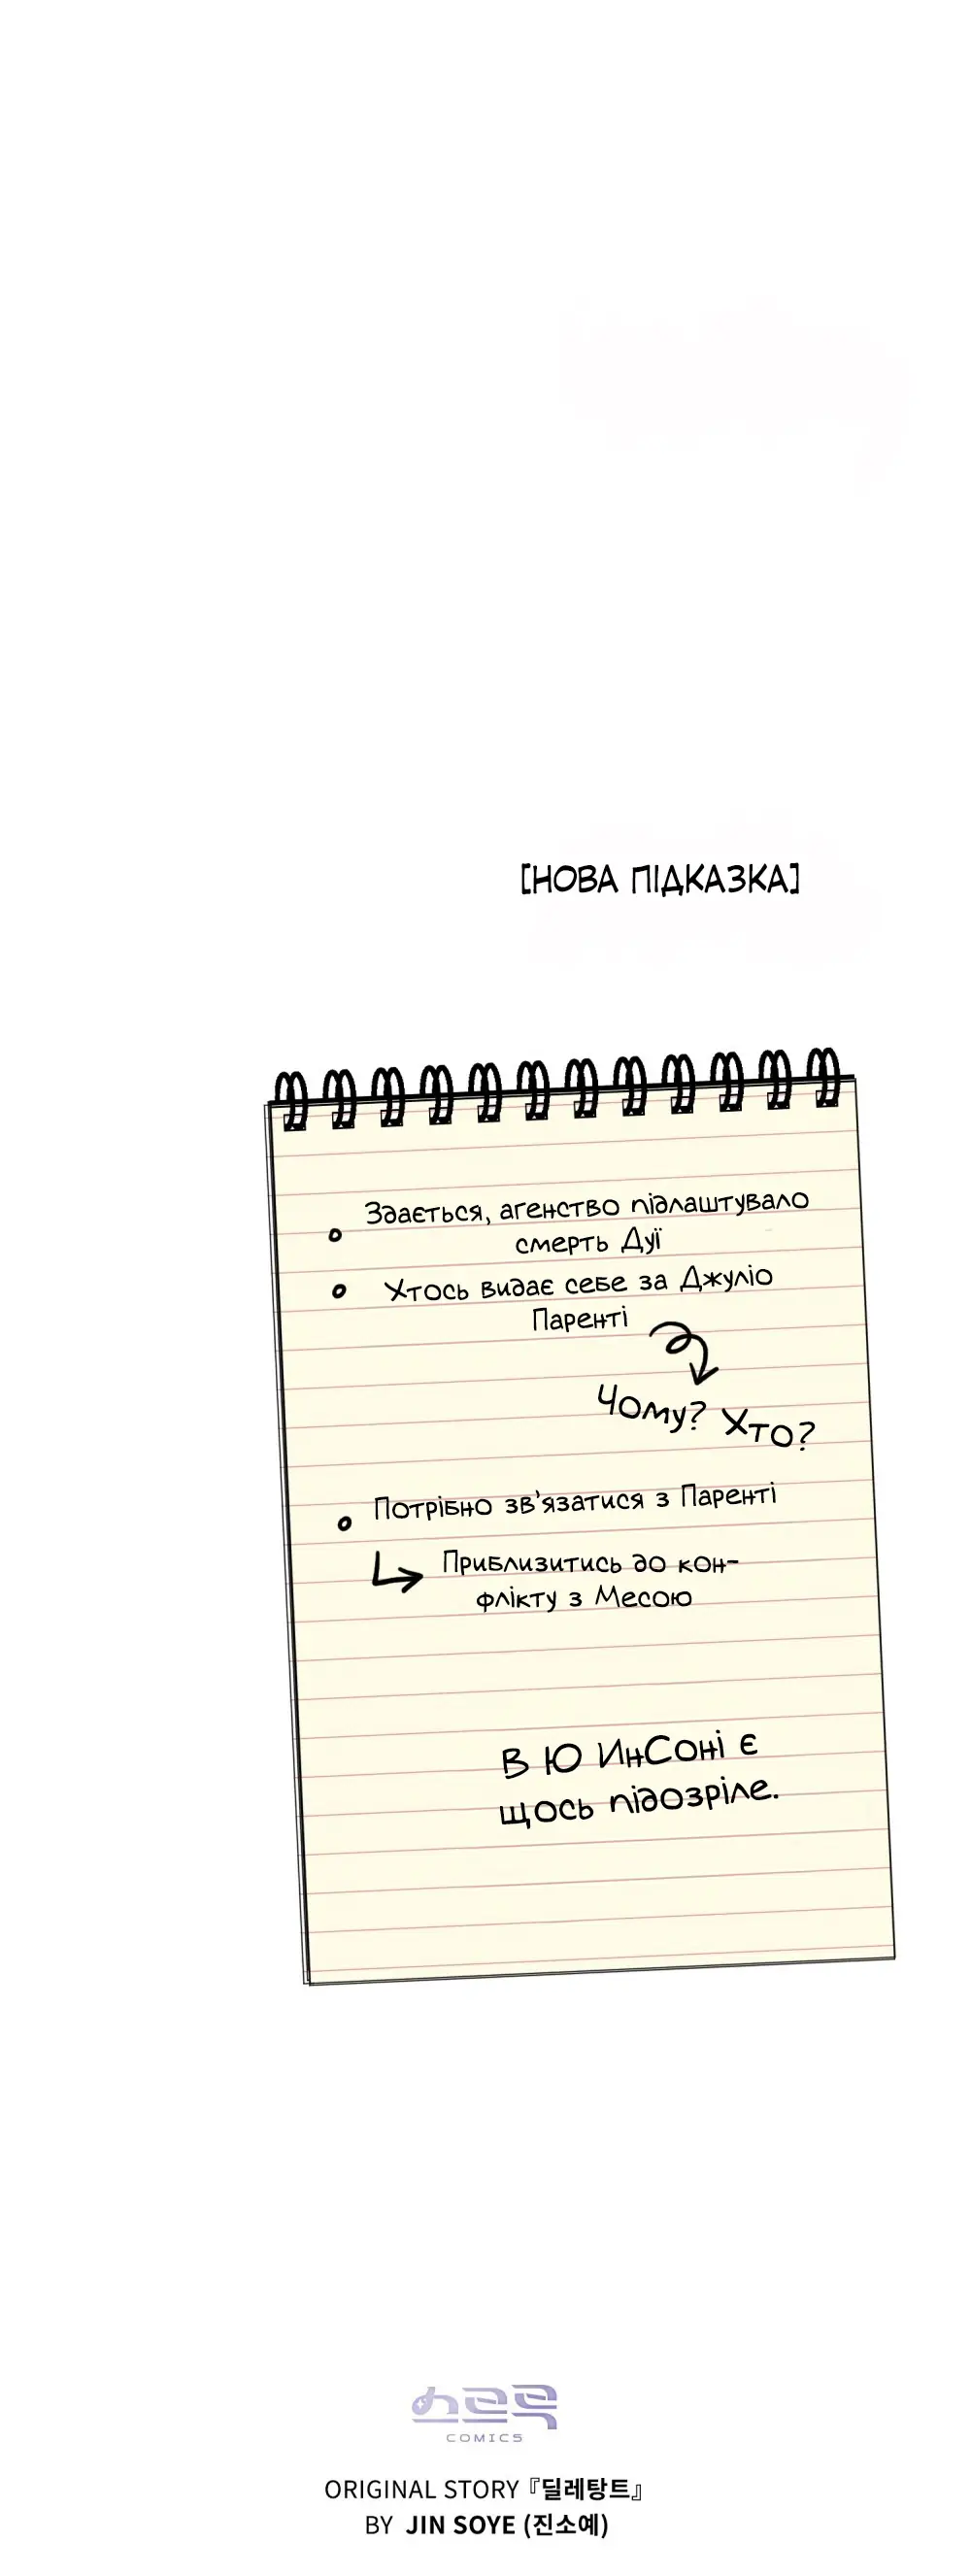 [НОВА ПІДКАЗКА]
Здається, агенство підлаштувало
смерть Дуї
Хтось видає себе за Джуліо
Паренті
Чому? Хто?
Потрібно зв'язатися з Паренті
Приблизитись до кон-
флікту з Месою
В Ю ИнСоні є
щось підозріле.
스르륵
COMICS
ORIGINAL STORY『딜레탕트』
BY JIN SOYE (진소예)